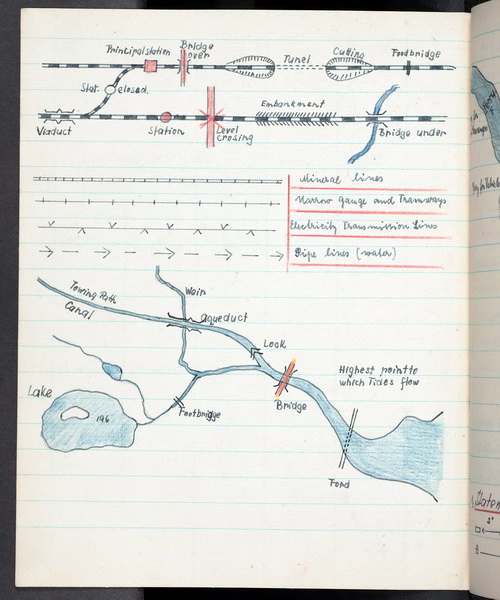 Principal station
Bridge
over
Tunel
Cutting
Footbridge
Stat. closed.
Embankment
Viaduct
Station
Level
crosing
Bridge under
Mineral lines
Narrow gauge and Tramways
Electricity Transmission Lines
Pipe lines (water)
Towing Path
Canal
Weir
aqueduct
Lock
Highest point to
which Tides flow
Lake
196
Footbridge
Bridge
Ford
Water